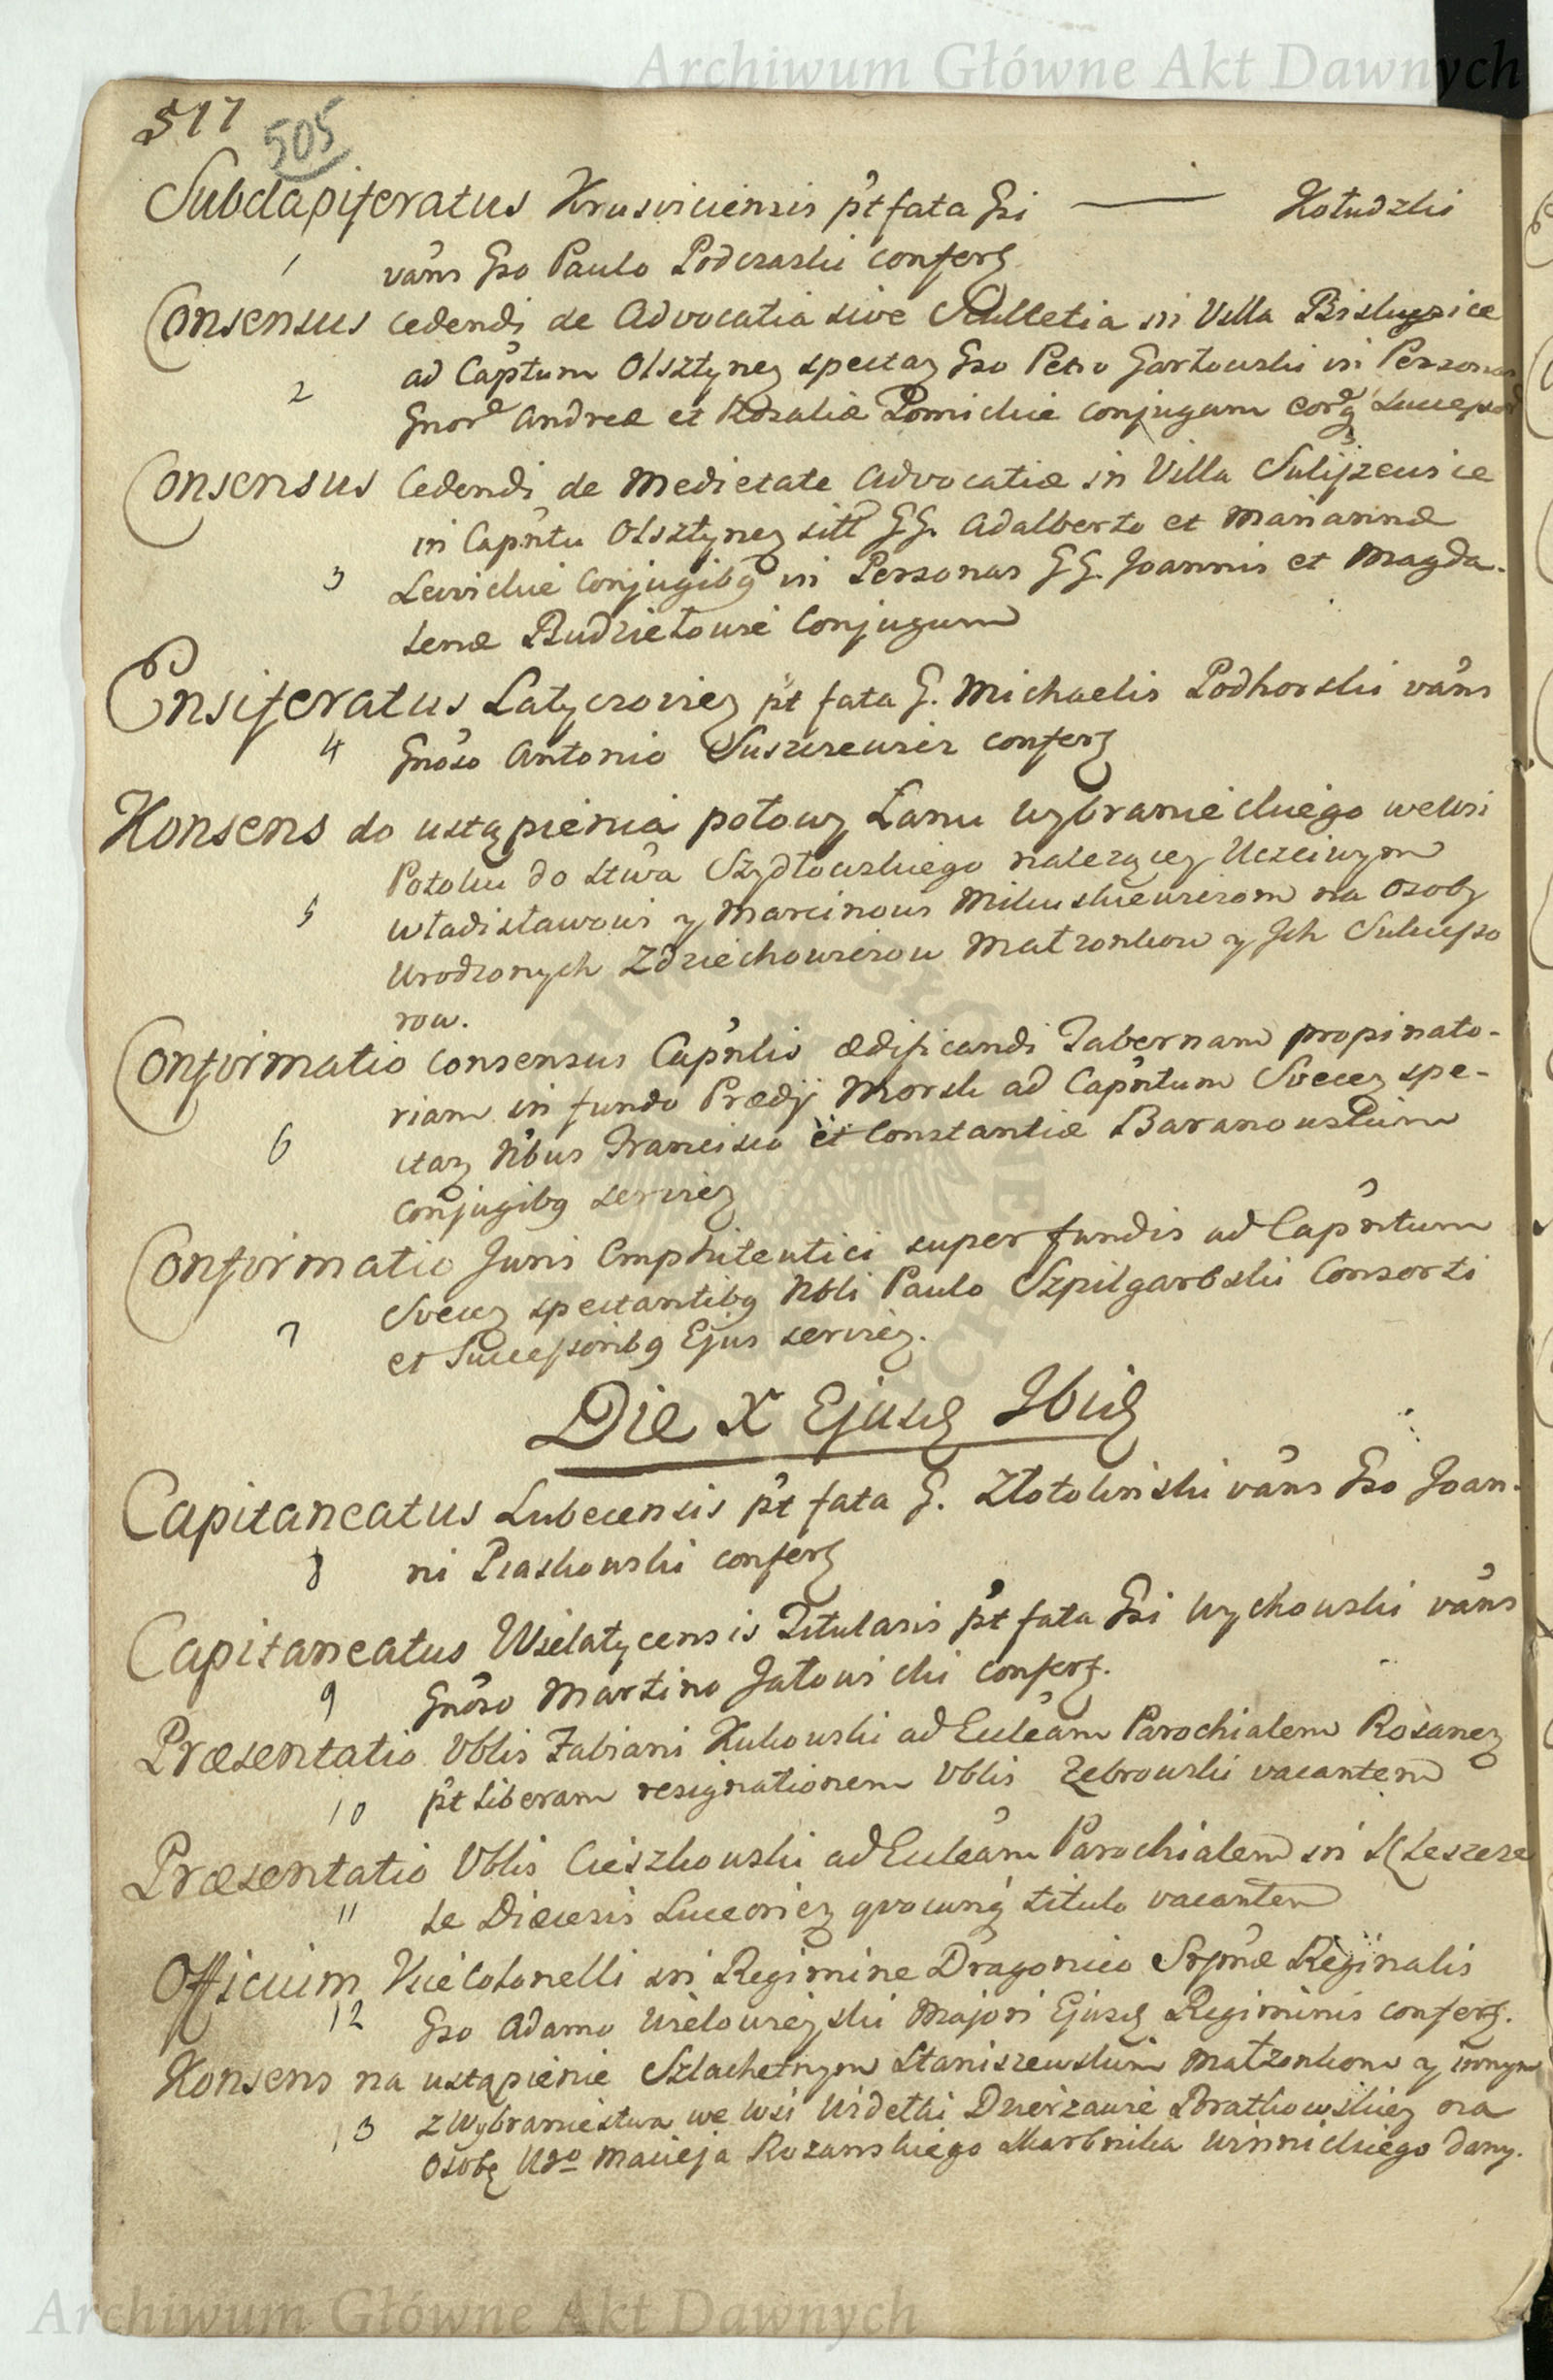 Archiwum Główne Akt Dawnych
517
505
Subdapiferatus Krusviciensis pt fata Gsi — Kołudzki
1 vans Gso Paulo Podczaski confert
Consensus cedendi de Advocatia sive Scultetia in Villa Biskupice
ad Captum Olsztynen spectan Gso Petro Garłowski in Personas
2 Gnor Andreæ et Rosaliæ Pomickie conjugum eorq Successor
Consensus Cedendi de Medietate Advocatiæ in Villa Sulijzewice
in Capntu Olsztynen sitt GG. Adalberto et Mariannæ
3 Lewickie Conjugibq in Personas GG. Joannis et Magda-
lenæ Budziełowie Conjugum
Ensiferatus Latyczovien pt fata G. Michaelis Podhorski vans
4 Gnoso Antonio Suszczewicz confert
Konsens do ustąpienia połowy Łanu Wybranieckiego wewsi
Potoku do Stwa Szydłowskiego nalezącey Uczciwym
5 Władisławowi y Marcinowi Mikuskiewiczom na Osoby
Urodzonych Zdziechowiczow Małzonkow y Jch Sukcesso
row.
Confirmatio consensus Capnlis ædificandi Tabernam propinato-
riam in fundo Prædij Morsk ad Capntum Svecen spe-
6 ctan Nbus Francisco et Constantiæ Baranowskim
conjugibq servien
Confirmatio Juris Emphiteutici super fundis ad Capntum
Svecen spectantibq Nbli Paulo Szpilgarbski Consorti
7 et Successoribq Ejus servien.
Die X Ejusd Ibid
Capitaneatus Lubecensis pt fata G. Złotoliński vans Gso Joan-
8 ni Piaskowski confert
Capitaneatus Wielatycensis Titularis pt fata Gsi Wychowski vans
9 Gnoso Martino Jałowicki confert.
Præsentatio Vblis Fabiani Kukowski ad Eccleam Parochialem Rozanen
10 pt liberam resignationem Vblis Zebrowski vacantem
Præsentatio Vblis Cieszkowski ad Eccleam Parochialem in Kleszcze
11 le Diæcesis Luceorien qvocunq titulo vacantem
Officium Vice Colonelli in Regimine Dragonico Srpmæ Reginalis
12 Gso Adamo Wielowieyski Majori Ejusd Regiminis confert.
Konsens na ustąpienie Szlachetnym Staniszewskim Małzonkom y innym
z Wybraniectwa we Wsi Widełki Dzierzawie Bratkowskiey na
13 Osobę Uro Macieja Rozanskiego Skarbnika Winnickiego dany.
Archiwum Główne Akt Dawnych